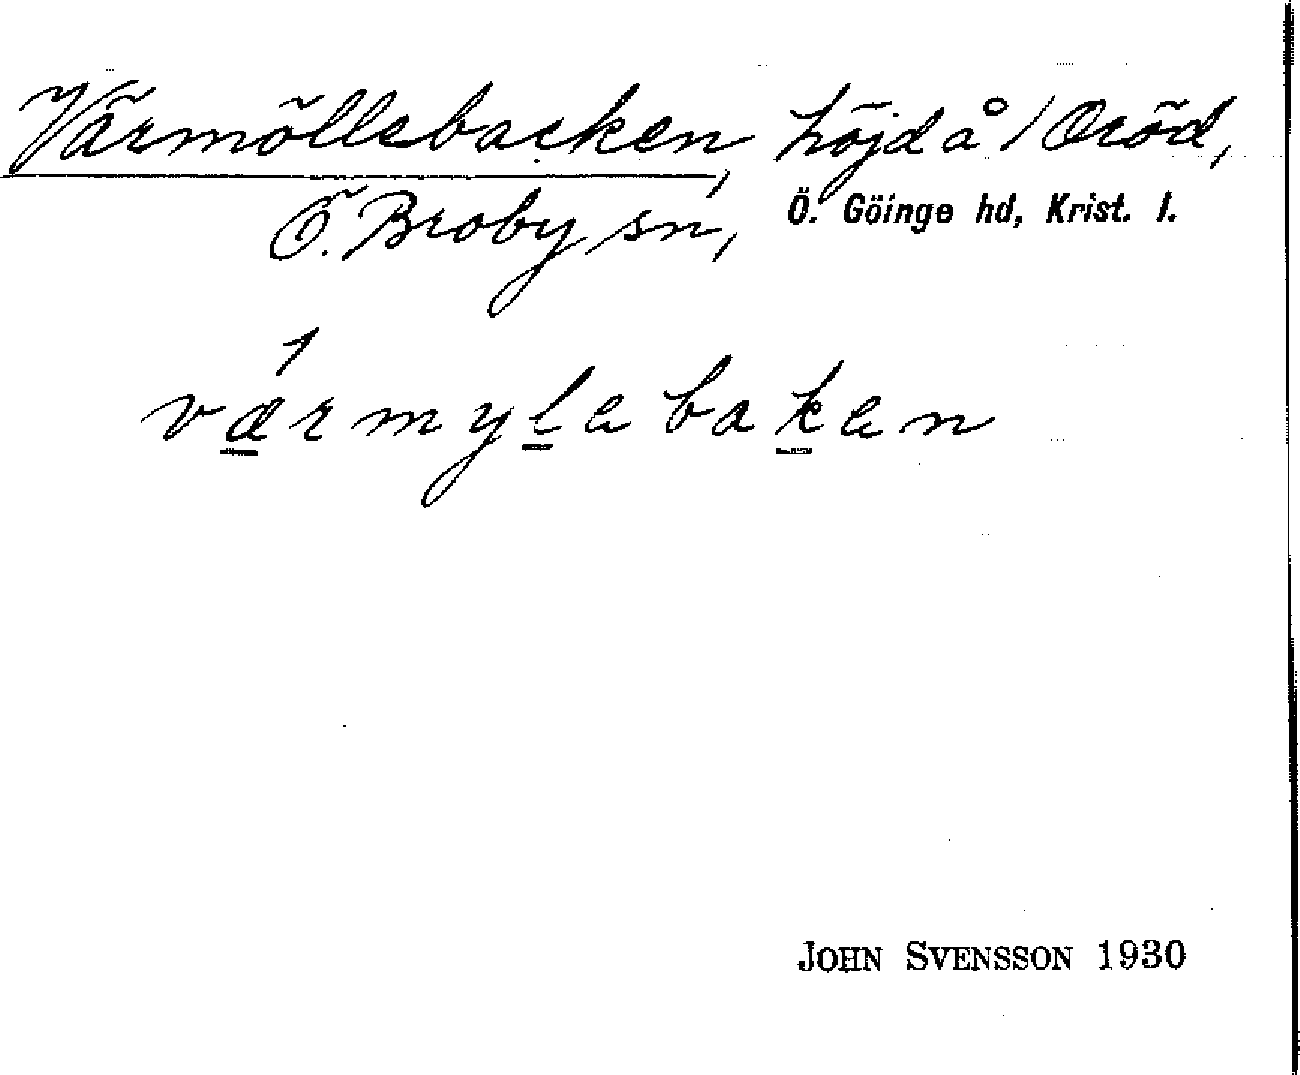 Värmöllebacken, höjd å /Oröd,
Ö. Broby sn, Ö. Göinge hd, Krist. l.
värmylebaken
JOHN SVENSSON 1930